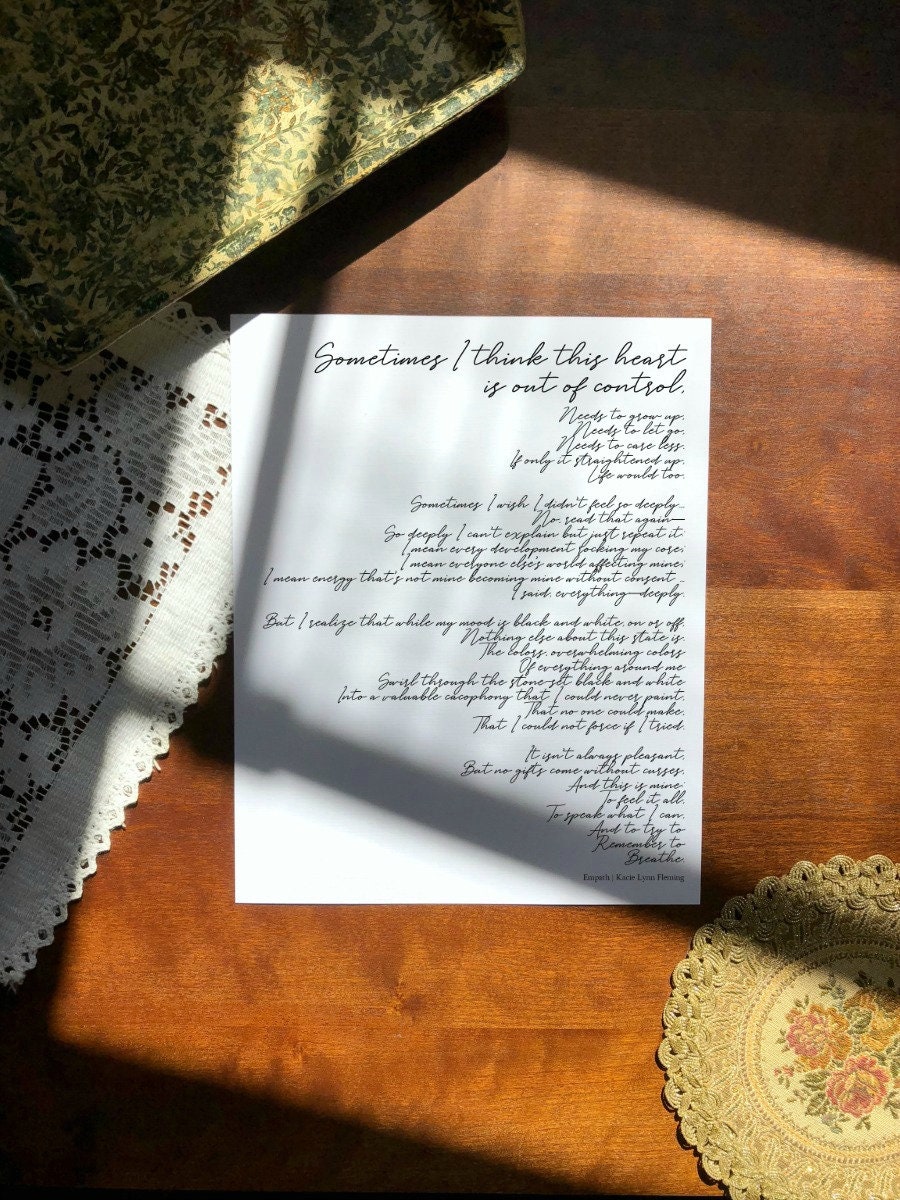 Sometimes I think this heart
is out of control.
Needs to grow up.
Needs to let go.
Needs to care less.
If only it straightened up,
Life would too.
Sometimes I wish I didn't feel so deeply—
No, read that again—
So deeply I can't explain but just repeat it:
I mean every development socking my core;
I mean everyone else's world affecting mine;
I mean energy that's not mine becoming mine without consent—
I said everything—deeply.
But I realize that while my mood is black and white, on or off,
Nothing else about this state is.
The colors, overwhelming colors
Of everything around me
Swirl through the stone-set black and white
Into a valuable cacophony that I could never paint,
That no one could make,
That I could not force if I tried.
It isn't always pleasant,
But no gifts come without curses,
And this is mine:
To feel it all,
To speak what I can,
And to try to
Remember to
Breathe.
Empath | Kacie Lynn Fleming